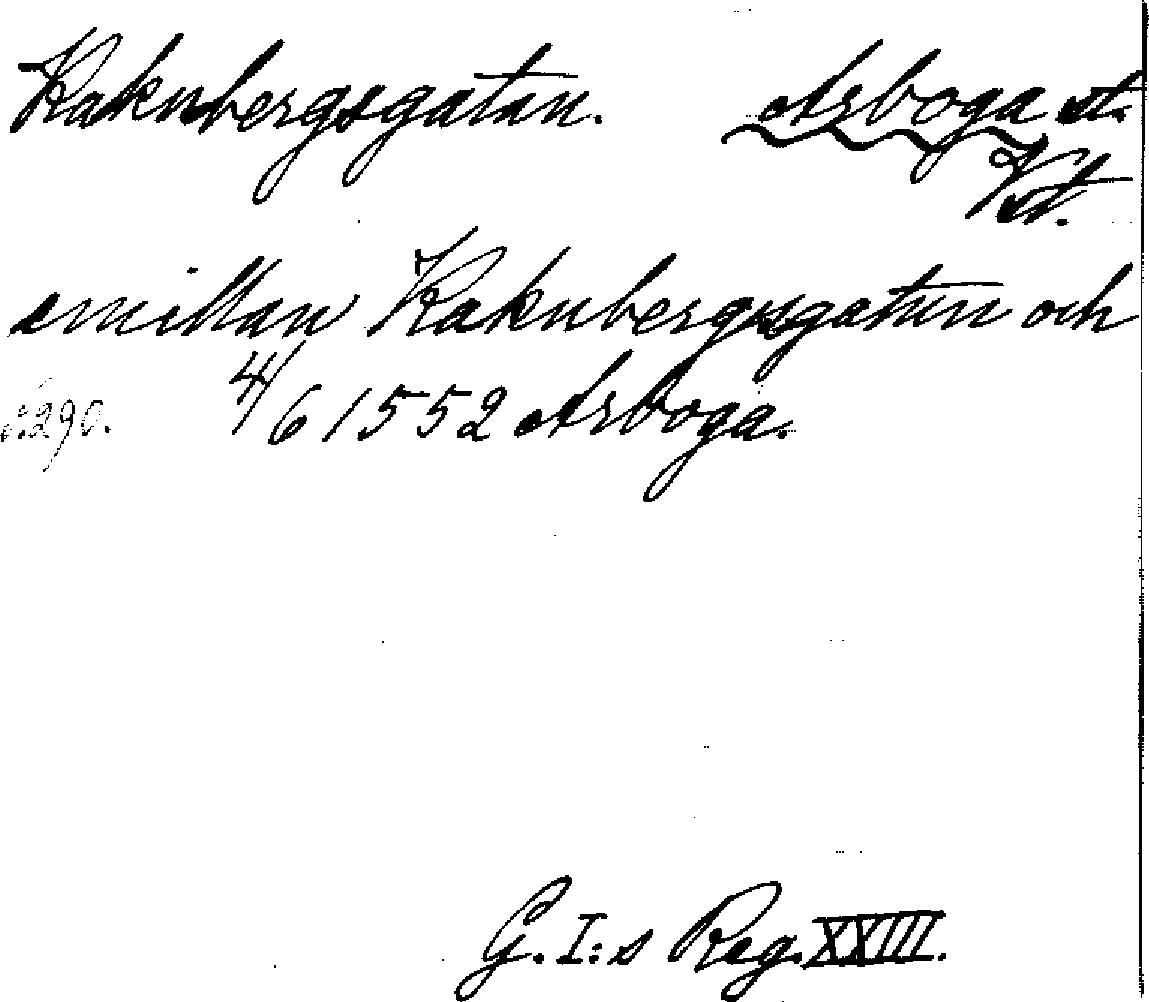 Kaknbergsgatan. Arboga st.
Vst.
emillan Kaknbergsgatun och
s. 290. 4/6 1552 Arboga.
G. I:s Reg. XXIII.